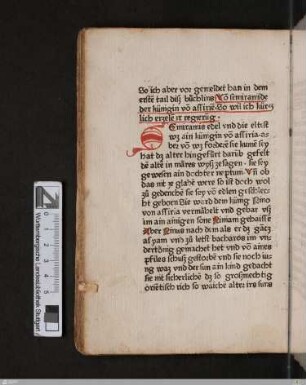 So ich aber vor gemeldet han in dem
erste tail diß büchlins Vō semiramide
der küngin vō assirie. So will ich kürcz
lich erzele ir regierūg.
Semiramis edel vnd die eltist
wz ain küngin vō assiria.
aber vō wz fordere sie kume sey
hat dz alter hingefürt dann gefelt
de alte in märes wyß zesagen. sie sey
gewesen ain dochter neptuni. Vn ob
das nit ze glabē were so ist doch wol
zü gedencke sie sey vō edlem geschlecht
geborn Die ward dem küng Nino
von assiria vermähelt vnd gebar vō
im ain ainigen sone Ninum gehaisse
Aber Ninus nach dem als er dz gācz
asyam vnd zü letst bactraros im vn-
dertönig gemachet het vnd vō aines
pfiles schuß gestorbē vnd sie noch iūg
waz vnd der sun ain kind gedacht
sie nit sicherliche dz so großmechtig
Württembergische Landesbibliothek Stuttgart